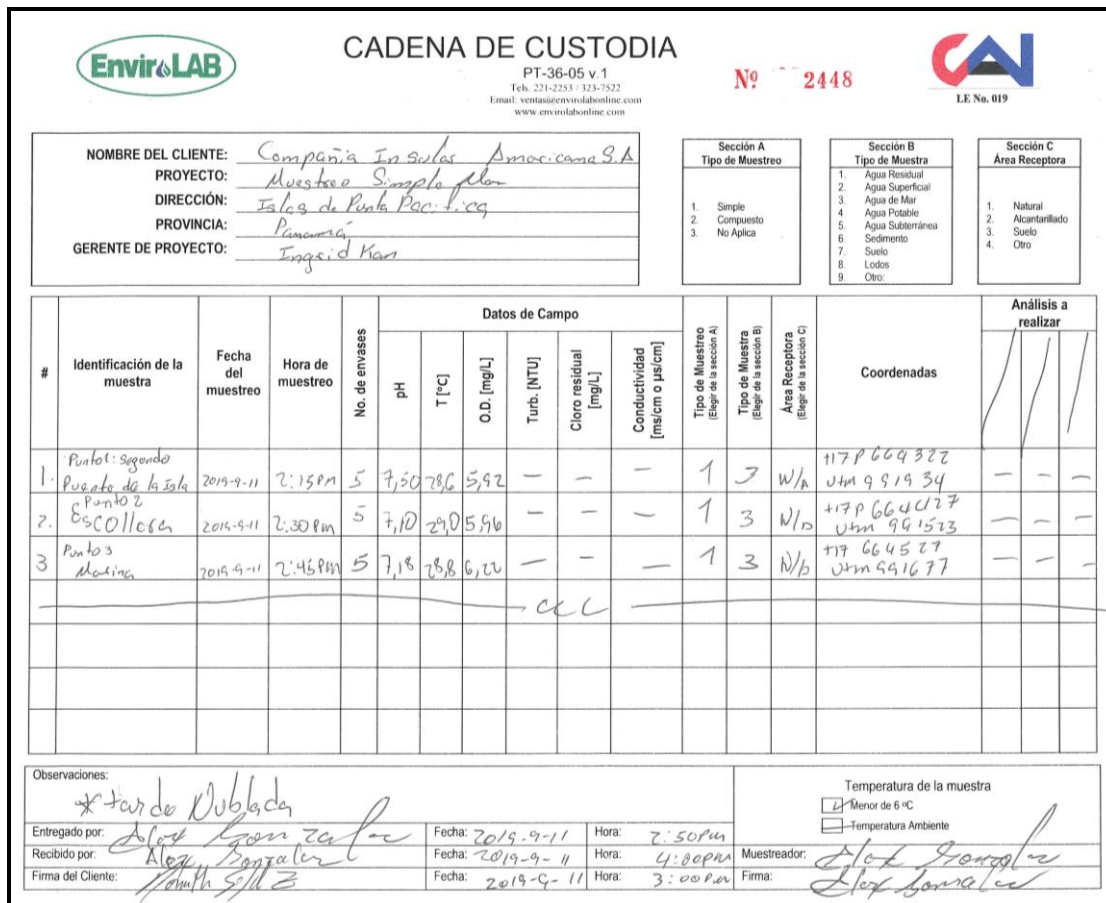 EnviroLAB
CADENA DE CUSTODIA
PT-36-05 v.1
Tels. 221-2253 / 323-7522
Email: ventas@envirolabonline.com
www.envirolabonline.com
Nº 2448
LE No. 019
NOMBRE DEL CLIENTE: Compañia Insulas Americana S.A
PROYECTO: Muestreo Simple Mar
DIRECCIÓN: Islas de Punta Pacifica
PROVINCIA: Panamá
GERENTE DE PROYECTO: Ingrid Kan
Sección A
Tipo de Muestreo
1. Simple
2. Compuesto
3. No Aplica
Sección B
Tipo de Muestra
1. Agua Residual
2. Agua Superficial
3. Agua de Mar
4 Agua Potable
5. Agua Subterránea
6. Sedimento
7. Suelo
8. Lodos
9. Otro:
Sección C
Área Receptora
1. Natural
2. Alcantarillado
3. Suelo
4. Otro
#
Identificación de la muestra
Fecha del muestreo
Hora de muestreo
No. de envases
Datos de Campo
pH
T [°C]
O.D. [mg/L]
Turb. [NTU]
Cloro residual [mg/L]
Conductividad [ms/cm o µs/cm]
Tipo de Muestreo (Elegir de la sección A)
Tipo de Muestra (Elegir de la sección B)
Área Receptora (Elegir de la sección C)
Coordenadas
Análisis a realizar
1. Punto1: Segundo Puente de la Isla 2019-9-11 2:15pm 5 7,50 28,6 5,92 — — — 1 3 N/A 17P 664322 Utm 991934 — — —
2. Punto 2 Escollera 2019-9-11 2:30pm 5 7,10 29,0 5,96 — — — 1 3 N/A 17P 664427 Utm 991523 — — —
3 Punto 3 Marina 2019-9-11 2:45pm 5 7,18 28,8 6,22 — — — 1 3 N/A 17 664527 Utm 991677 — — —
Observaciones:
* tarde Nublada
Temperatura de la muestra
Menor de 6 ºC
Temperatura Ambiente
Entregado por: Alex Gonzalez Fecha: 2019-9-11 Hora: 2:50pm
Recibido por: Alex Gonzalez Fecha: 2019-9-11 Hora: 4:00pm Muestreador: Alex Gonzalez
Firma del Cliente: Fecha: 2019-9-11 Hora: 3:00pm Firma: Alex Gonzalez